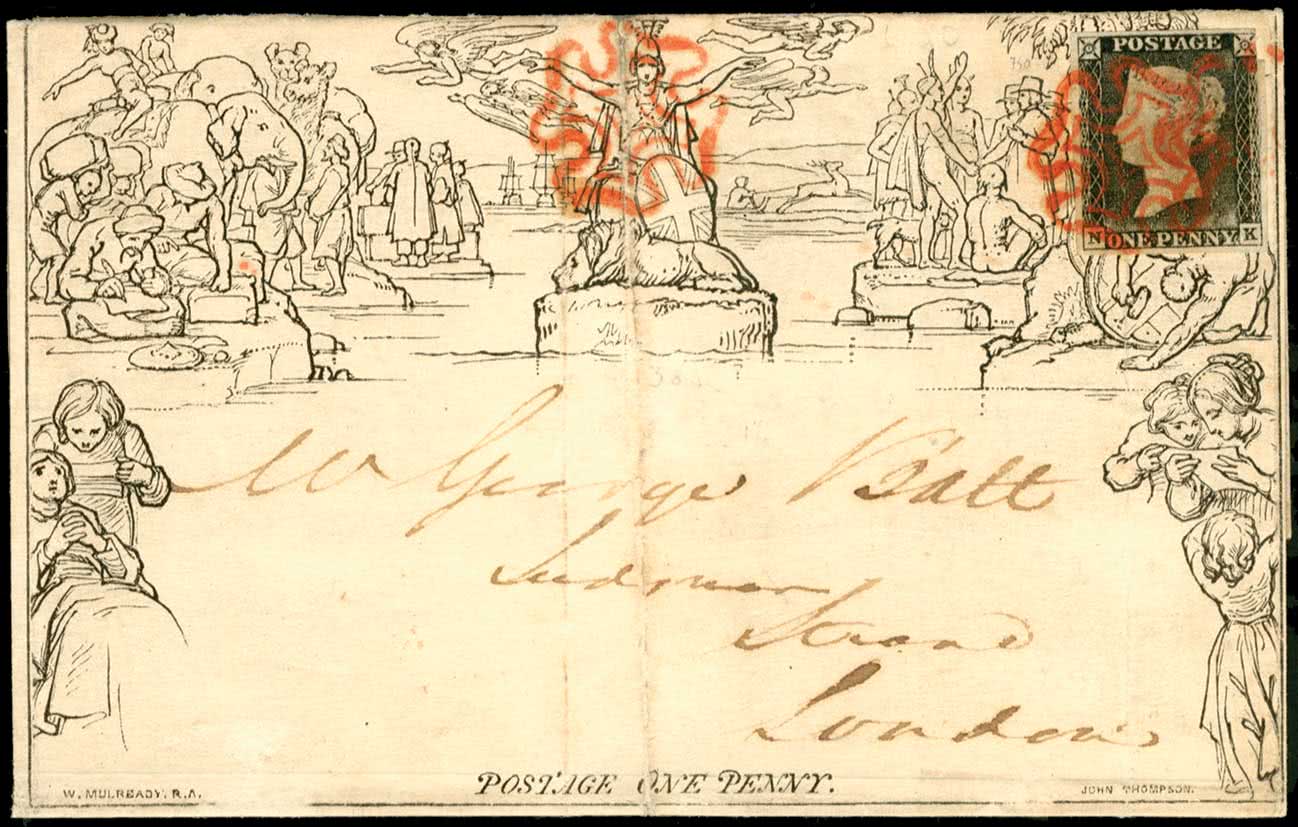 POSTAGE
N ONE PENNY K
Mr George Batt
Strand
London
POSTAGE ONE PENNY.
W. MULREADY. R.A.
JOHN THOMPSON.